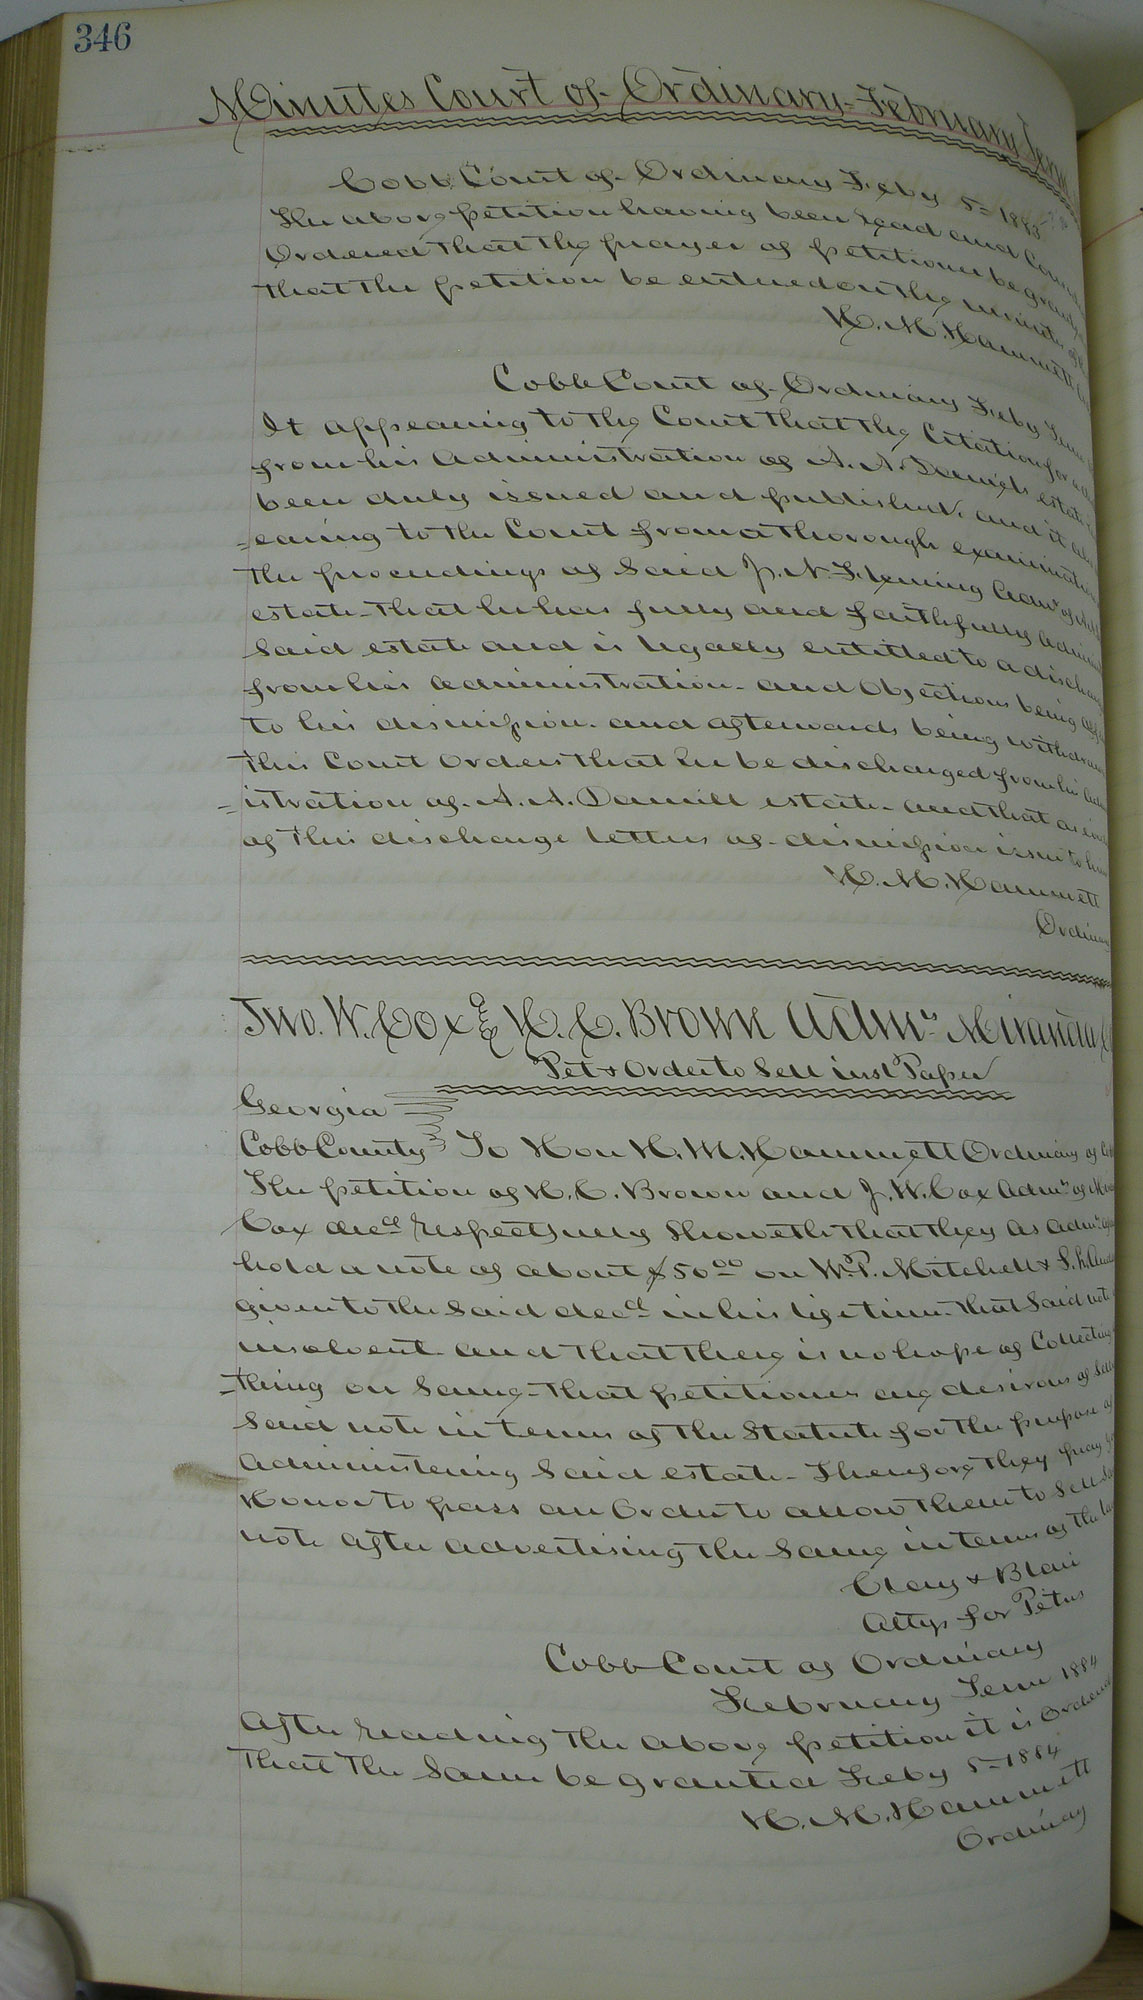 346
Minutes Court of Ordinary February Term
Cobb Court of Ordinary Feby 5= 1883
The above petition having been read and
Ordered that the prayer of petitioner be
that the petition be entered on the minutes of
H. M. Hammett
Cobb Court of Ordinary Feby Term
It appearing to the Court that the Citation for
from his administration of A. A. Daniels estate
been duly issued and published, and it
=earing to the Court from a thorough examination
the proceedings of Said J. N. Fleming Admr of
estate that he has fully and faithfully
Said estate and is legally entitled to a discharge
from his administration - and Objections being
to his dismission and afterwards being withdrawn
This Court Orders that he be discharged from his
=istration of A. A. Daniell estate - and that
of this discharge letters of dismission issue to him
H. M. Hammett
Ordinary
Jno. W. Cox & H. C. Brown Admrs Miranda
Pet & Order to Sell inst Paper
Georgia
Cobb County To Hon H. M. Hammett Ordinary of
The petition of H. C. Brown and J. W. Cox Admrs of
Cox decd respectfully Showeth that they as admrs
hold a note of about $50.00 on W. P. Mitchell & S. L.
given to the Said decd in his lifetime that Said note
insolvent and that there is no hope of Collecting
=thing on Same - that petitioners are desirous of
Said note in terms of the Statute for the purpose of
administering Said estate - Therefore they pray
Honor to pass an Order to allow them to Sell
note after advertising the Same in terms of the
Clay & Blair
Attys for Petrs
Cobb Court of Ordinary
February Term 1884
After reading the above petition it is Ordered
that the Same be granted Feby 5= 1884
H. M. Hammett
Ordinary